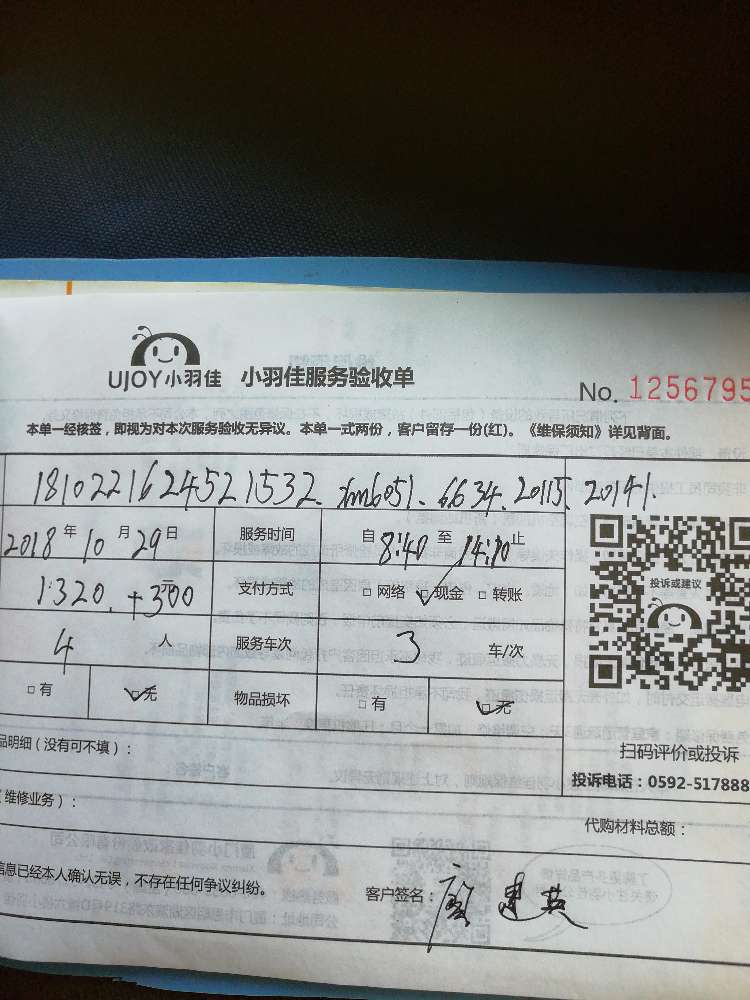 UJOY小羽佳 小羽佳服务验收单
No. 1256795
本单一经核签，即视为对本次服务验收无异议。本单一式两份，客户留存一份(红)。《维保须知》详见背面。
1810221624521532. xm6051. 6634. 20115. 20141.
2018年10月29日 服务时间 自8:40至14:10止
1320.+300元 支付方式 □网络 ☑现金 □转账
投诉或建议
4人 服务车次 3 车/次
□有 ☑无 物品损坏 □有 ☑无
扫码评价或投诉
品明细（没有可不填）：
投诉电话：0592-517888
维修业务）：
代购材料总额：
信息已经本人确认无误，不存在任何争议纠纷。
客户签名：廖建英